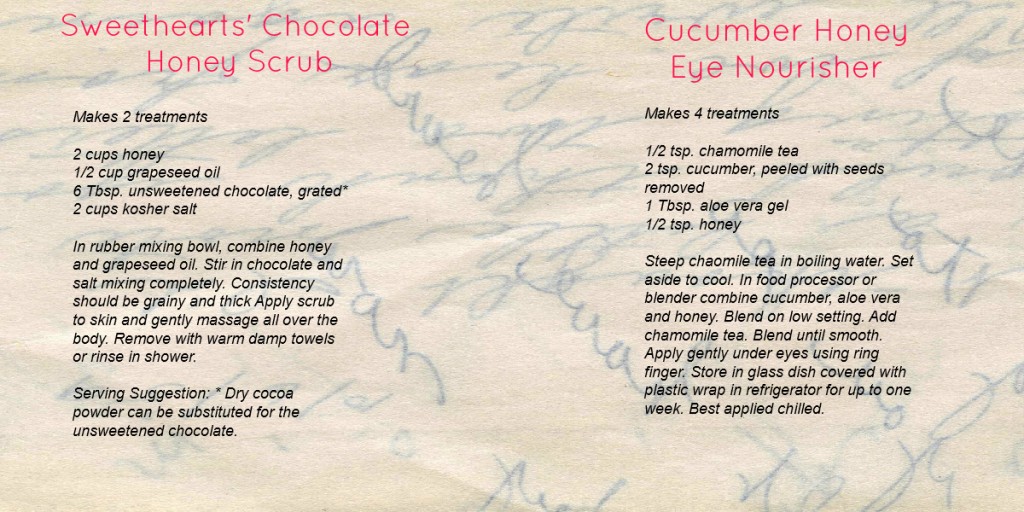 Sweethearts' Chocolate
Honey Scrub
Makes 2 treatments
2 cups honey
1/2 cup grapeseed oil
6 Tbsp. unsweetened chocolate, grated*
2 cups kosher salt
In rubber mixing bowl, combine honey
and grapeseed oil. Stir in chocolate and
salt mixing completely. Consistency
should be grainy and thick Apply scrub
to skin and gently massage all over the
body. Remove with warm damp towels
or rinse in shower.
Serving Suggestion: * Dry cocoa
powder can be substituted for the
unsweetened chocolate.
Cucumber Honey
Eye Nourisher
Makes 4 treatments
1/2 tsp. chamomile tea
2 tsp. cucumber, peeled with seeds
removed
1 Tbsp. aloe vera gel
1/2 tsp. honey
Steep chaomile tea in boiling water. Set
aside to cool. In food processor or
blender combine cucumber, aloe vera
and honey. Blend on low setting. Add
chamomile tea. Blend until smooth.
Apply gently under eyes using ring
finger. Store in glass dish covered with
plastic wrap in refrigerator for up to one
week. Best applied chilled.